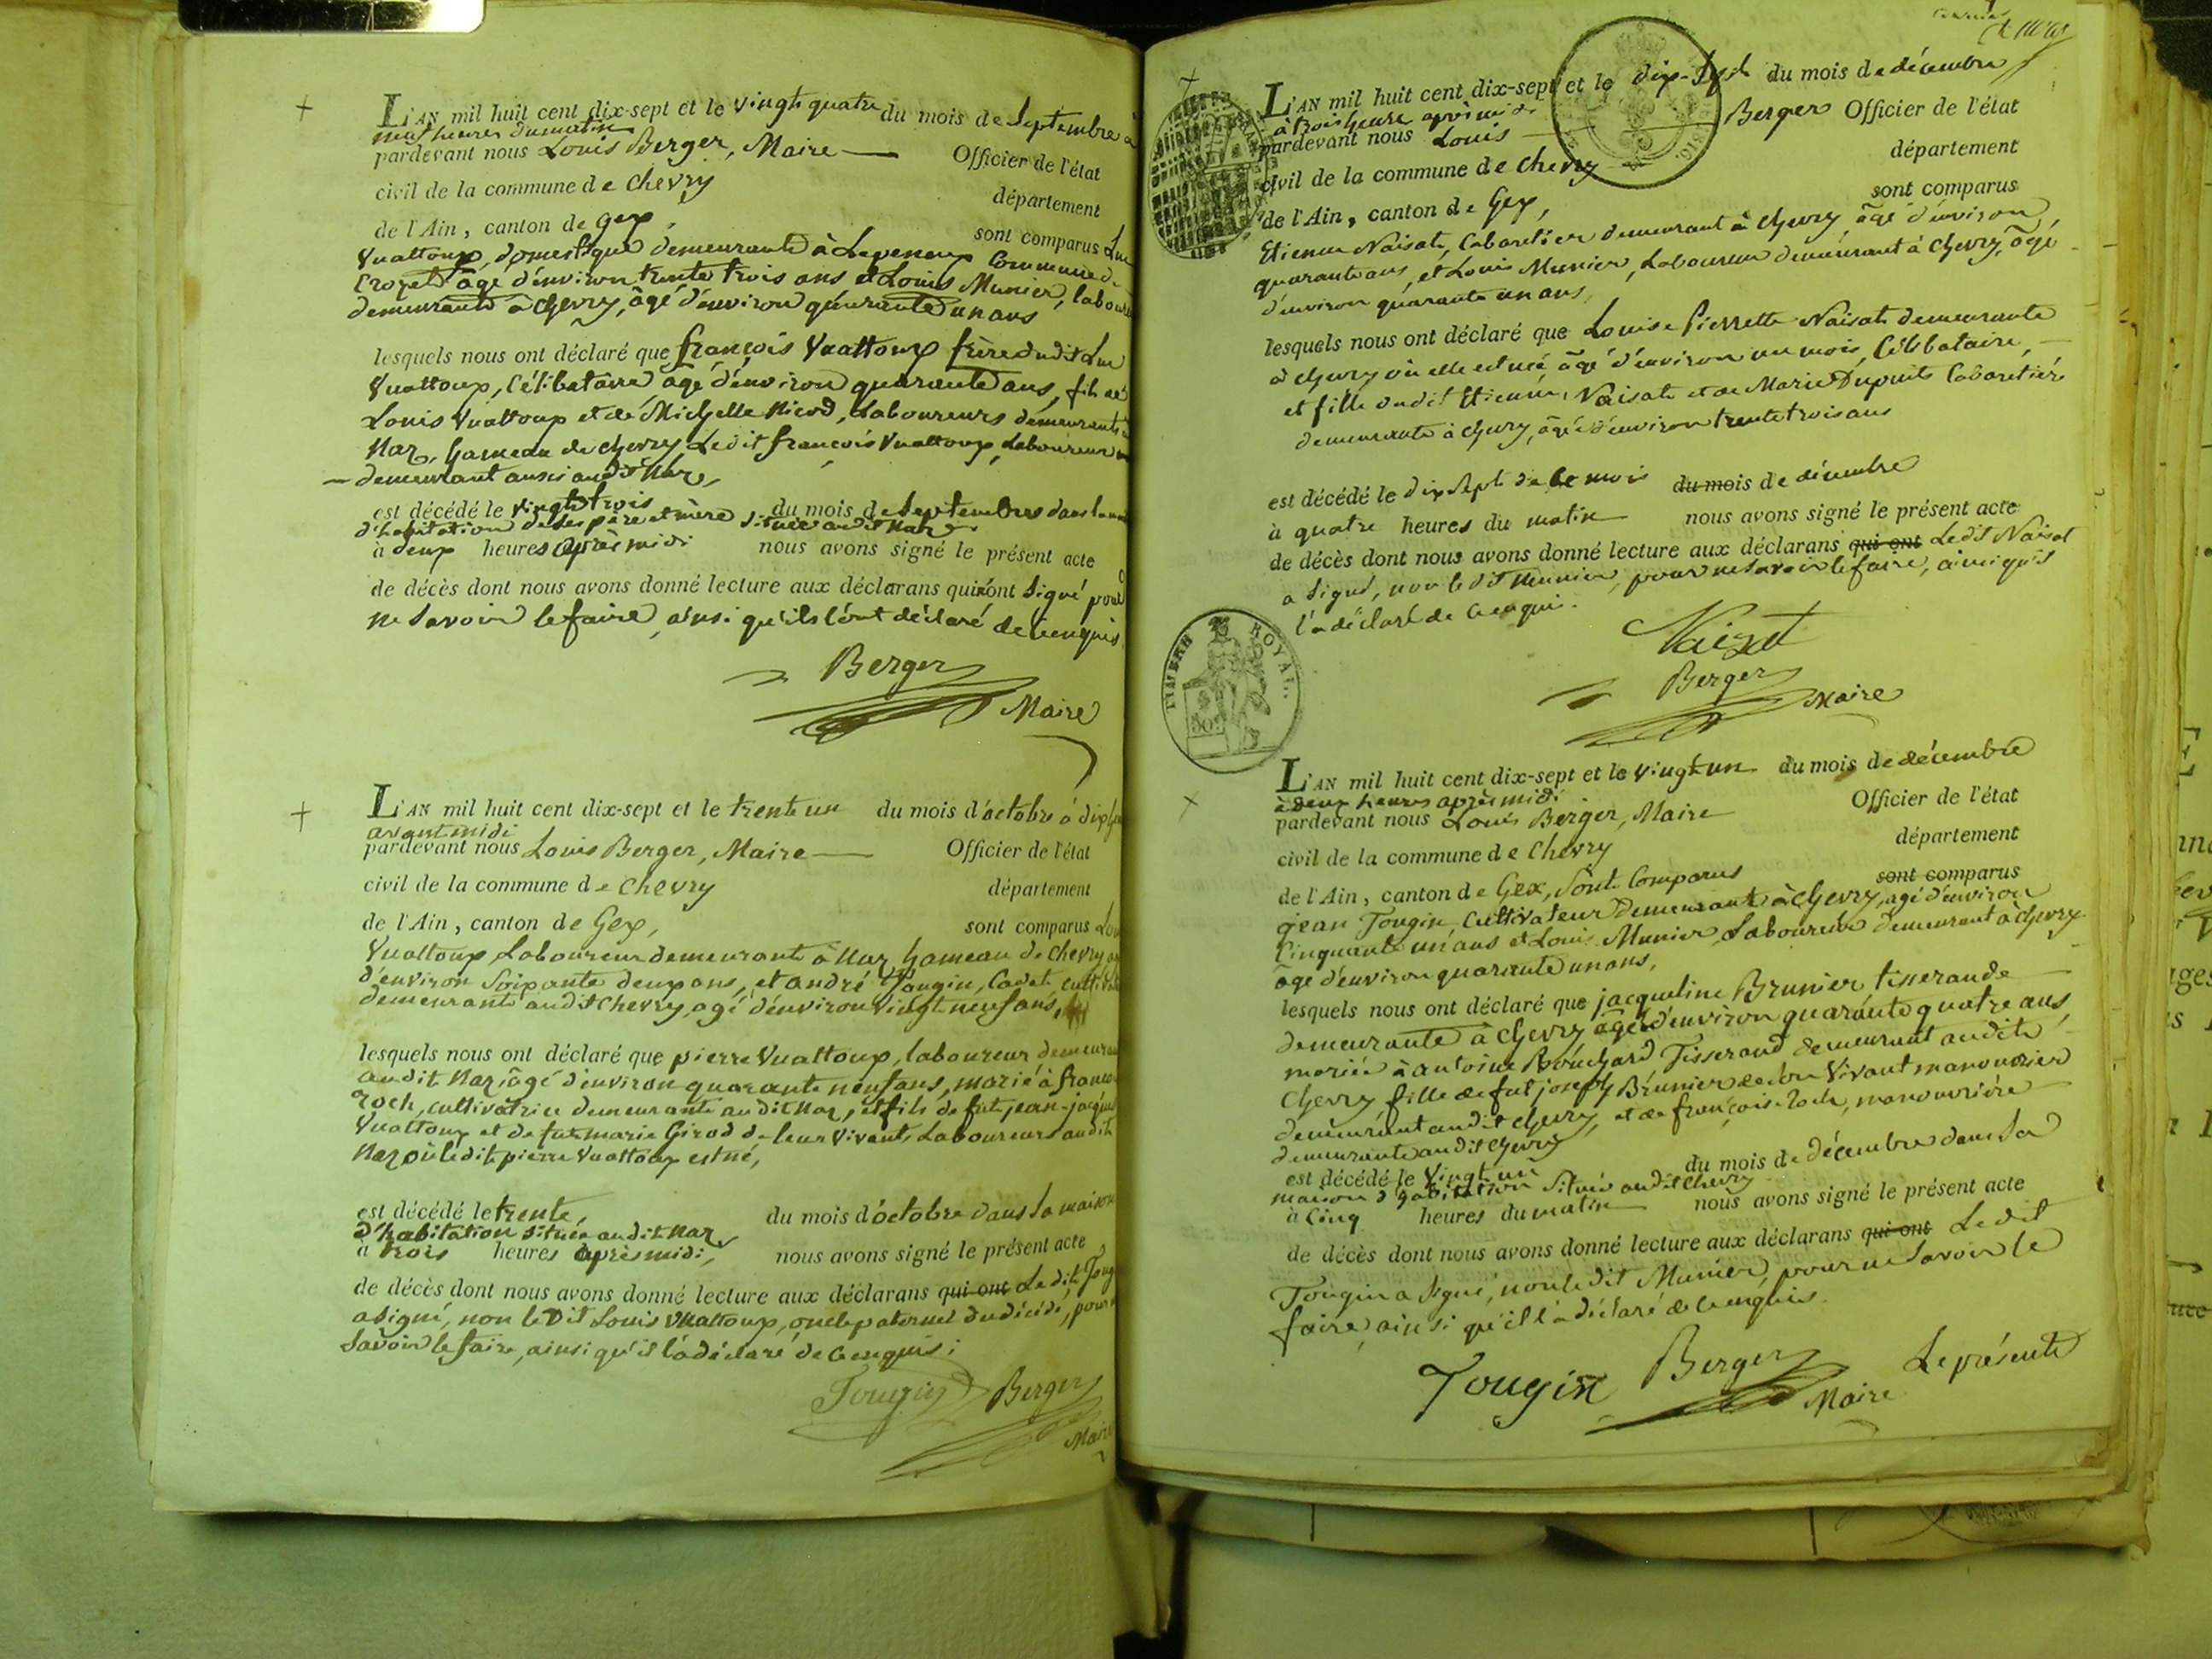 L'AN mil huit cent dix-sept et le vingt quatre du mois de Septembre à
neuf heures du matin
pardevant nous Louis Berger, Maire Officier de l'état
civil de la commune de Chevry département
de l'Ain, canton de Gex, sont comparus Luc
Vuattoux, domestique demeurant à commune de
Crozet âgé d'environ trente trois ans et Louis Munier, laboureur
demeurant à Chevry, âgé d'environ quarante un ans
lesquels nous ont déclaré que françois Vuattoux frère dudit Luc
Vuattoux, Célibataire âgé d'environ quarante ans, fils de
Louis Vuattoux et de Michelle Nicod, Laboureurs demeurants à
Naz, hameau de chevry Ledit françois Vuattoux, Laboureur
demeurant aussi audit Naz,
est décédé le vingt trois du mois de Septembre dans la
d'habitation de ses père et mère située audit Naz
à deux heures après midi nous avons signé le présent acte
de décès dont nous avons donné lecture aux déclarans qui n'ont signé pour
ne Savoir le faire, ainsi qu'ils l'ont déclaré de ce enquis
Berger
Maire
L'AN mil huit cent dix-sept et le trente un du mois d'octobre à dix
avant midi
pardevant nous Louis Berger, Maire Officier de l'état
civil de la commune de Chevry département
de l'Ain, canton de Gex, sont comparus Louis
Vuattoux Laboureur demeurant à Naz hameau de Chevry
d'environ Soixante deux ans, et andré Tougin, Cadet,
demeurant audit Chevry, agé d'environ vingt neuf ans,
lesquels nous ont déclaré que pierre Vuattoux, laboureur demeurant
audit Naz âgé d'environ quarante neuf ans, marié à
roch, cultivatrice demeurante audit Naz, et fils de fut jean-jacques
Vuattoux et de fut marie Girod de leur vivants Laboureurs audit
Naz où ledit pierre Vuattoux est né,
est décédé le trente, du mois d'octobre dans sa maison
d'habitation située audit Naz
à trois heures après midi, nous avons signé le présent acte
de décès dont nous avons donné lecture aux déclarans qui ont Ledit
a signé, non le Dit Louis Vuattoux, oncle paternel du décédé, pour
Savoir le faire, ainsi qu'il l'a déclaré de ce enquis;
Tougin Berger
Maire
L'AN mil huit cent dix-sept et le dix-sept du mois de décembre
à trois heure après midi
pardevant nous Louis Berger Officier de l'état
civil de la commune de Chevry département
de l'Ain, canton de Gex, sont comparus
Etienne Naisat, Cabaretier demeurant à Chevry âgé d'environ
quarante ans, et Louis Munier, Laboureur demeurant à Chevry, âgé
d'environ quarante un ans,
lesquels nous ont déclaré que Louise Pierrette Naisat demeurante
à chevry où elle est née, âgé d'environ un mois, Célibataire,
et fille dudit Etienne Naisat et de Marie Dupuits Cabaretier
demeurante à chevry, âgée d'environ trente trois ans
est décédé le dix sept de ce mois du mois de décembre
à quatre heures du matin nous avons signé le présent acte
de décès dont nous avons donné lecture aux déclarans qui ont Ledit Naisat
a signé, non le dit Munier, pour ne savoir le faire, ainsi qu'il
l'a déclaré de ce enquis.
TIMBRE ROYAL
Naizat
Berger
Maire
L'AN mil huit cent dix-sept et le vingt un du mois de décembre
à deux heures après midi
pardevant nous Louis Berger, Maire Officier de l'état
civil de la commune de Chevry département
de l'Ain, canton de Gex, sont Comparus sont comparus
jean Tougin, Cultivateur demeurant à Chevry, agé d'environ
Cinquante un ans et Louis Munier Laboureur demeurant à chevry
âgé d'environ quarante un ans,
lesquels nous ont déclaré que jacqueline Brunier tisserande
demeurante à Chevry âgée d'environ quarante quatre ans,
mariée à antoine Bouchard, Tisserand demeurant audit
Chevry, fille de fut joseph Brunier de son Vivant manouvrier
demeurant audit chevry, et de françoise roch, manouvrière
demeurante audit Chevry
est décédé le Vingt un du mois de décembre dans sa
maison d'habitation située audit Chevry
à Cinq heures du matin nous avons signé le présent acte
de décès dont nous avons donné lecture aux déclarans qui ont Ledit
Tougin a signé, non le dit Munier, pour ne savoir le
faire, ainsi qu'il l'a déclaré de ce enquis.
Tougin Berger Le présente
Maire